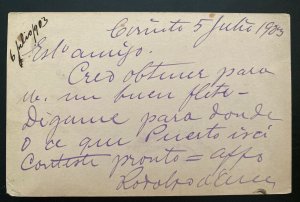 6 julio 903
Corinto 5 Julio 1903
Esto amigo.
Creo obtener para
v. un buen flete-
Digame para donde
o ce que Puerto irá
Conteste pronto = affo
Rodolfo